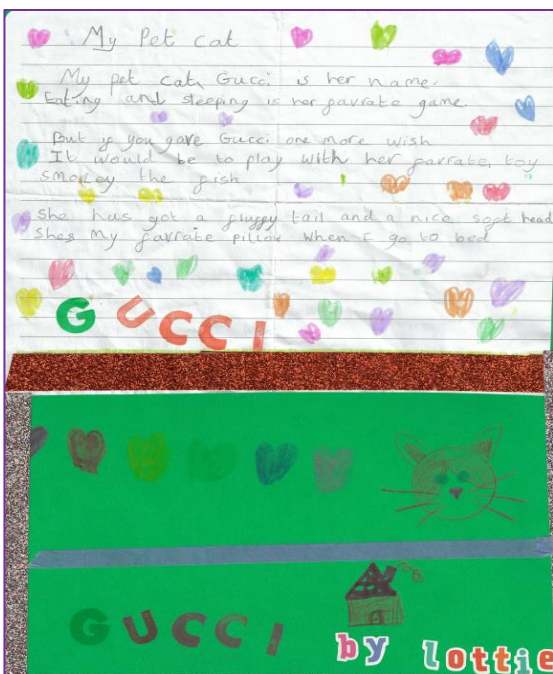 My Pet cat
My pet cat, Gucci is her name.
Eating and sleeping is her favrate game.
But if you gave Gucci one more wish
It would be to play with her favrate, toy
smokey the fish
She has got a fluffy tail and a nice soft head
Shes My favrate pillow when I go to bed
GUCCI
GUCCI
by lottie